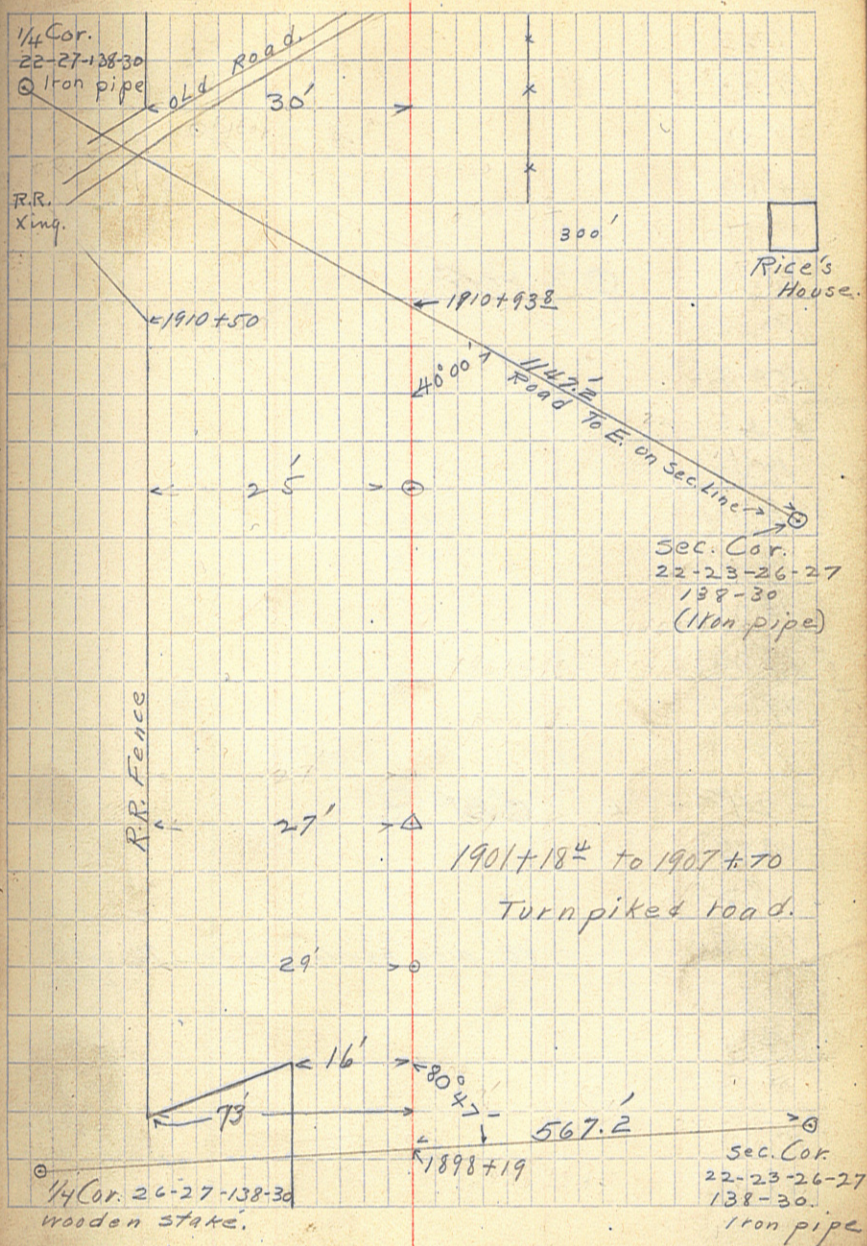 1/4 Cor.
22-27-138-30
Iron pipe
OLd Road.
30'
R.R.
Xing.
300'
Rice's
House.
1910+93 8
1910+50
40°00'
1147.2'
Road To E. on Sec. Line
25'
Sec. Cor.
22-23-26-27
138-30
(Iron pipe)
R.R. Fence
27'
1901+18 4 to 1907+70
Turnpiked road.
29'
16'
80°47'
73'
567.2'
1898+19
Sec. Cor.
22-23-26-27
138-30.
Iron pipe
1/4 Cor. 26-27-138-30
wooden stake.